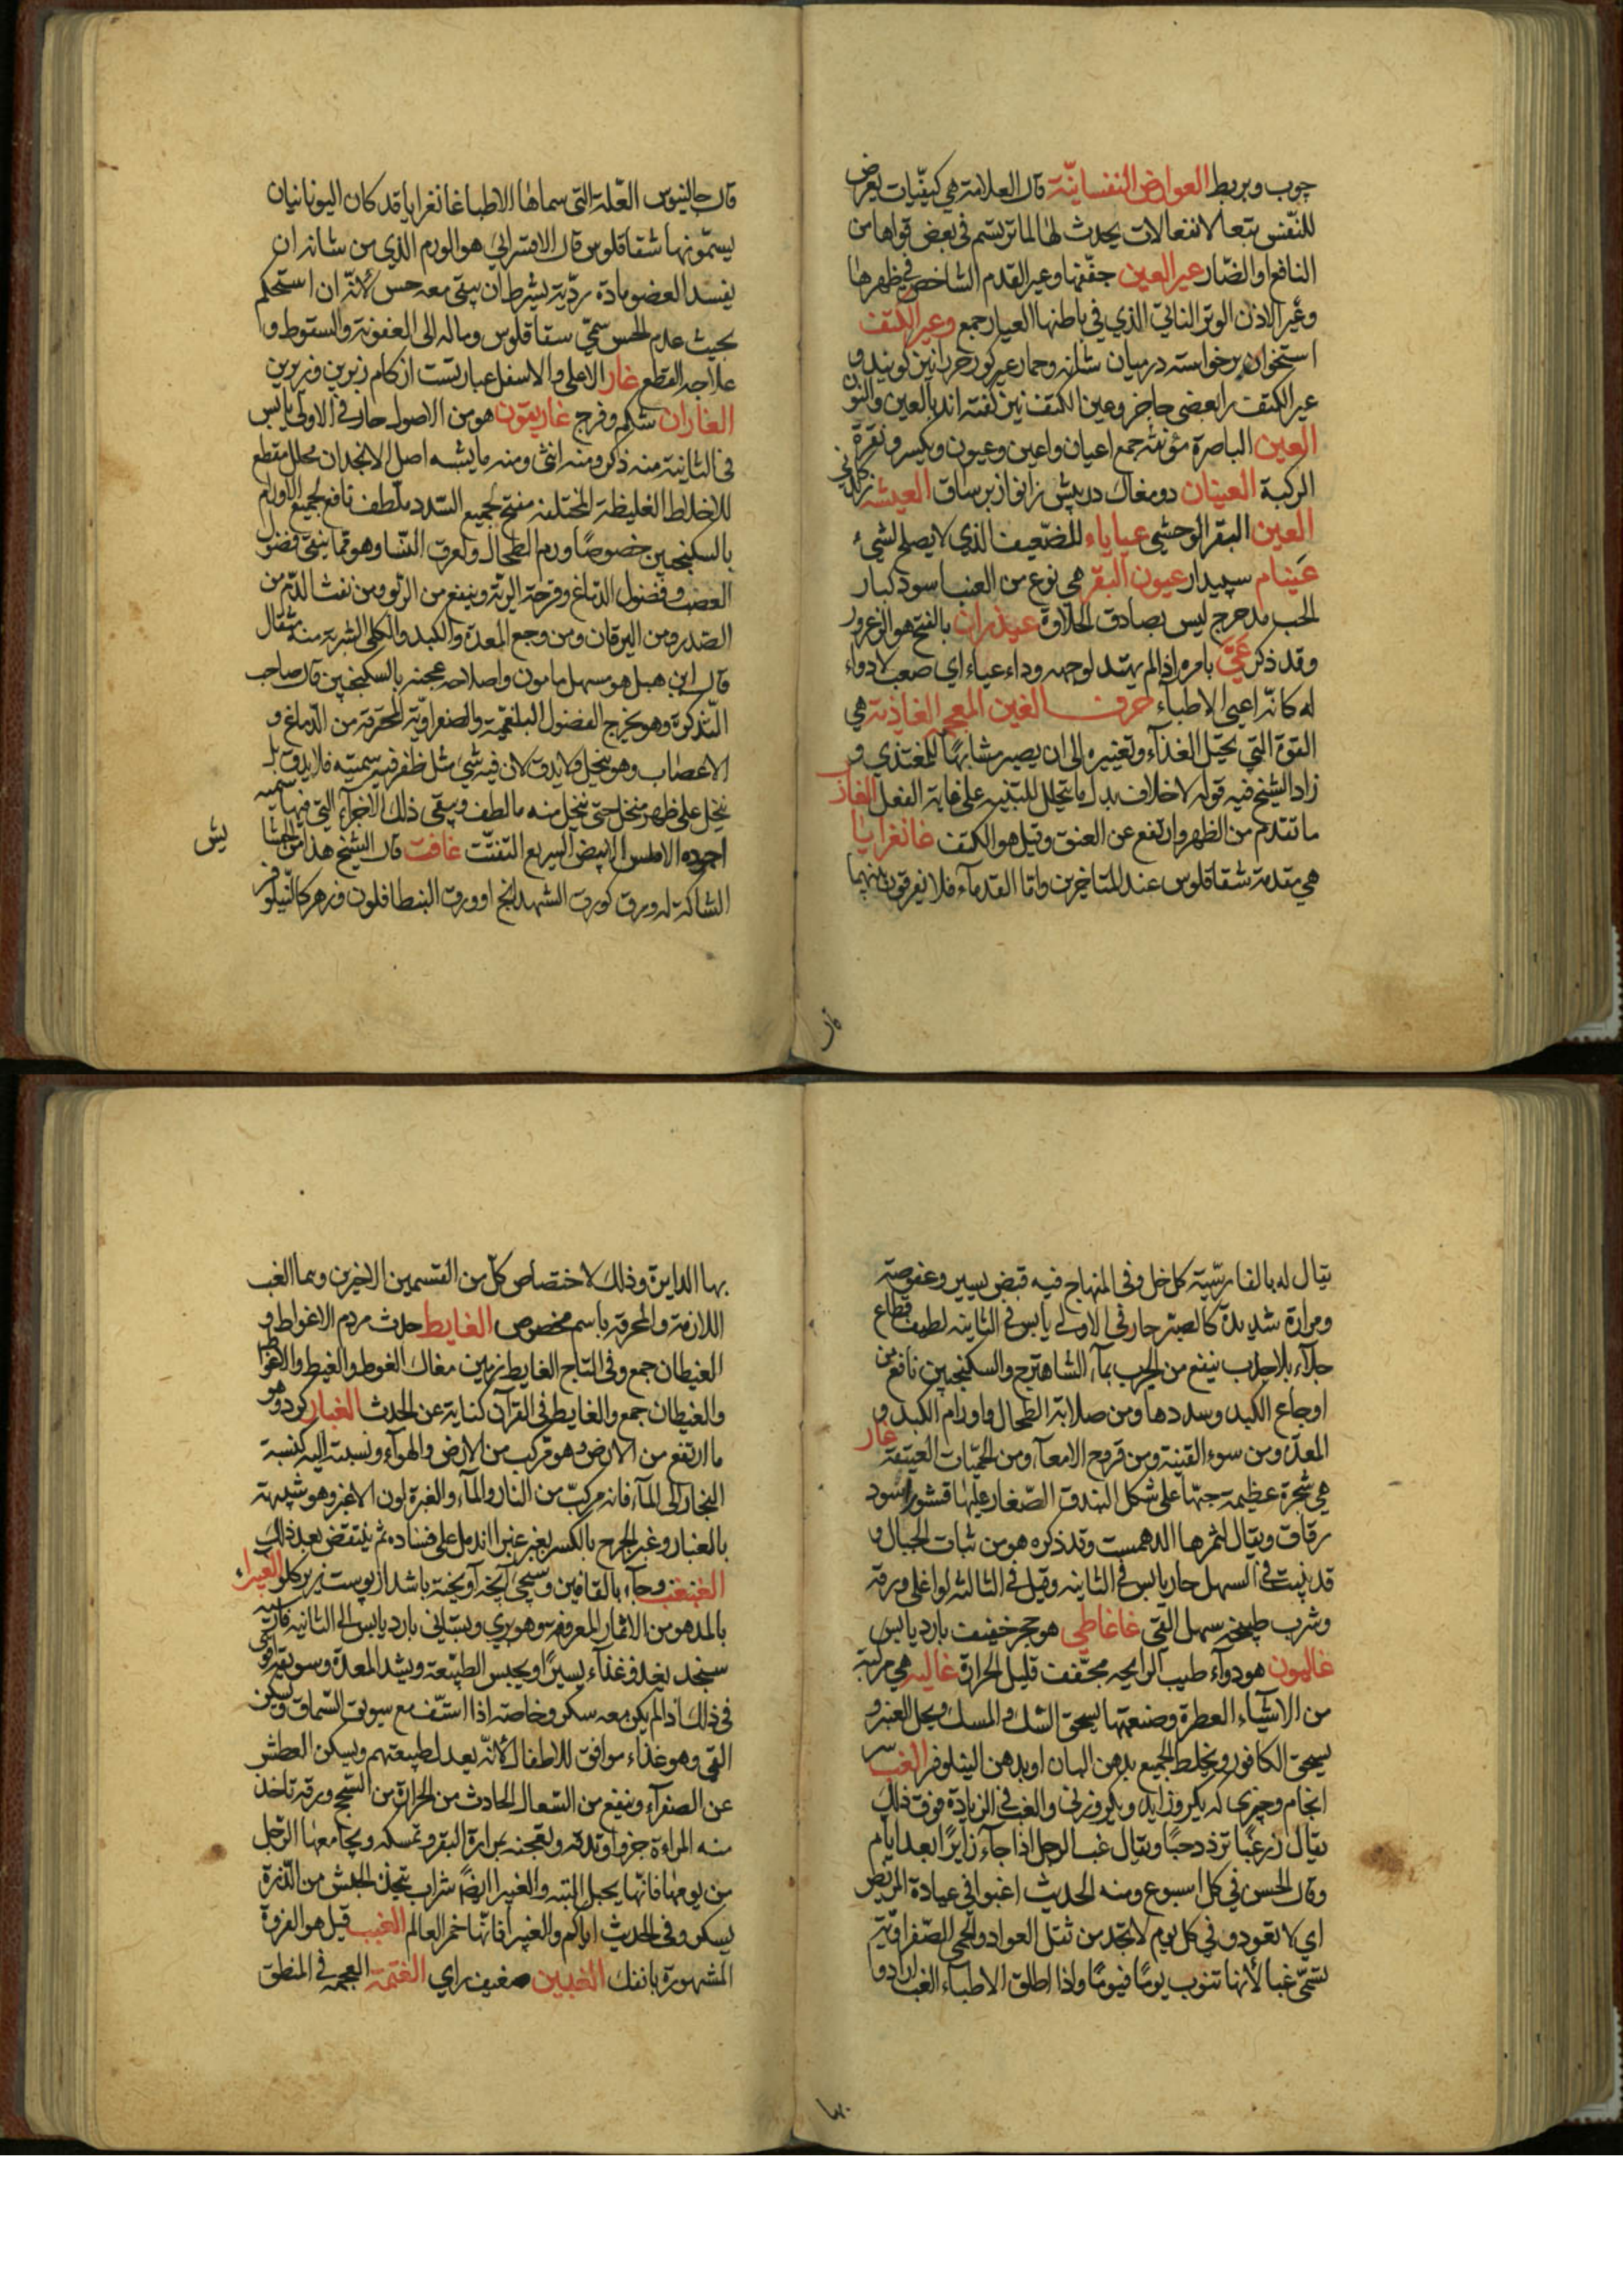 چوب و بربط العوارض النفسانيّة قال العلامة هي كيفيّات يعرض
للنّفس تبعا لانفعالات يحدث لها لما ترتسم في بعض قواها من
النافع او الضّار عير العين جفنها و عير القدم الشاخص في ظهرها
و عير الاذن الوتر الناتي الذي في باطنها العيار جمع و عير الكتف
استخوان برخواسته در میان شانه و حمار عیر کور خر را نیز کویند و
عير الكتف را بعضی حاجز و عین الکتف نیز کفته اند بالعین و النون
العين الباصرة مؤنثة جمع اعيان و اعين و عيون و بكسر و نقرة
الركبة العينان دو مغاک در پیش زانو از بر ساق العيشة زندکانی
العين البقر الوحشي عياياء للضّعيف الذي لا يصلح لشيء
عَينام سپیدار عيون البقر هي نوع من العنب اسود كبار
الحب مدحرج ليس بصادق الحلاوة عيذران بالفتح هو الزعرور
و قد ذكر عَيَّ بامره اذا لم يهتد لوجهه و داء عياء اي صعب لا دواء
له كانّه اعيى الاطباء حرف الغين المعجمة الغاذية هي
القوة التي يحيّل الغذاء و تغيره الى ان يصير مشابهًا للمغتذي و
زاد الشيخ فيه قوله لاخلاف بدل ما يتحلل للتنبيه على غاية الفعل الغارب
ما تقدم من الظهر و ارتفع عن العنق و قيل هو الكتف غانغرايا
هي مقدمة شقاقلوس عند المتاخرين و اما القدماء فلا يفرقون بينهما
قال
قال جالينوس العّلة التي سماها الاطبا غانغرايا قد كان اليونانيان
يسمّونها شقاقلوس قال الاقسرائي هو الورم الذي من شانه ان
يفسد العضو بمادة رديّة بشرط ان يبقى معه حس لأنّه ان استحكم
بحيث عدم الحس سمّي سقاقلوس و ماله الى العفونة و السقوط و
علاجه القطع غار الاعلى و الاسفل عبارتست از کام زبرین و زیرین
الغاران شکم و فرج غاريقون هو من الاصول حار في الاولى يابس
في الثانية منه ذكر و منه انثى و منه ما يشبه اصل الانجدان محلل مقطع
للاخلاط الغليظة المختلفة مفتح لجميع السّدد ملطف نافع لجميع الاورام
بالسكنجبين خصوصًا ورم الطحال و لعرق النسا و هو مما ينقي فضول
العصب و فضول الدماغ و قرحة الرية و ينفع من الربو و من نفث الدّم من
الصدر و من اليرقان و من وجع المعدة و الكبد و الكلى الشربة منه مثقال
قال ابن هبل هو مسهل مامون و اصلاحه عجنه بالسكنجبين قال صاحب
التذكرة و هو يخرج الفضول البلغمية و الصفراوية المحترقة من الدماغ و
الاعصاب و هو ينخل و لا يدق لان فيه شيء مثل ظفر فيه سمّيّة فلا يدق بل
ينخل على ظهر منخل حتى ينخل منه ما لطف و يبقى ذلك الاجزاء التي فيها سمّيّة
اجوده الاملس الابيض السريع التفتّت غافت قال الشيخ هذا من الحشا
يش
الشاكة له ورق كورق الشهدانج او ورق البنطافلون و زهر كالنيلوفر
يقال له بالفارسيّة كل خل و في المنهاج فيه قبض يسير و عفوصة
و مرارة شديدة كالصبر حار في الاولى يابس في الثانية لطيف قطاع
جلاء بلا جذب ينفع من الجرب بماء الشاهترج و السكنجبين نافع من
اوجاع الكبد و سددها و من صلابة الطحال و اورام الكبد و
المعدة و من سوء القنية و من قروح الامعاء و من الحميّات العتيقة غار
هي شجرة عظيمة حبّها على شكل البندق الصّغار عليها قشور اسود
رقاق و يقال لثمرها الدهمست و قد ذكره هو من نبات الجبال و
قد ينبت في السهل حار يابس في الثانية و قيل في الثالثة لو اغلى ورقه
و شرب طبيخه سهل القي غاغاطي هو حجر خفيف بارد يابس
غاليون هو دواء طيب الرايحه مجفف قليل الحرارة غاليه هي مركبة
من الاشياء العطرة و صنعتها يسحق السك و المسك و يحل العنبر و
يسحق الكافور و يخلط الجميع بدهن البان او بدهن النيلوفر الغب
انجام و چیزی که یکروز اید و یکروز نی و الغب في الزيادة فوق ذلك
يقال زرغبًا تزدد حبًا و يقال غب الرجل اذا جاء زايرًا بعد ايام
و قال الحسن في كل اسبوع و منه الحديث اغبوا في عيادة المريض
اي لا تعودو في كل يوم لا تجد من ثقل العواد و الحمى الصّفراويّة
تسمّى غبا لأنها تنوب يومًا فيومًا و اذا اطلق الاطباء الغب ارادوا
بها
بها الدايرة و ذلك لاختصاص كلّ من القسمين الاخيرين و هما الغب
اللازمة و المحرقة باسم مخصوص الغايط حدث مردم الاغواط و
الغيطان جمع و في التاج الغايط زمین مغاک الغوط و الغيط و الاغواط
و الغيطان جمع و الغايط في القرآن كناية عن الحدث الغبار کرد و هو
ما ارتفع من الارض و هو مركب من الارض و الهواء و نسبته اليه كنسبة
البخار الى الماء فانه مركبّ من النار و الماء و الغبرة لون الاغبر و هو شبيهة
بالغبار و غبر الجرح بالكسر يغبر غبرا اندمل على فساده ثم ينتقض بعد ذلك
الغبغب و جاء بالقافين و سيجيء آنچه آویخته باشد از پوست زیر کلو الغبيراء
بالمد هو من الاثمار المعروفة و هو بري و بستاني بارد يابس الى الثانية فارسيّته
سنجد يغذو غذاء يسيرًا و يحبس الطبيعة و يشد المعدة و سويقه اقوى
في ذلك اذا لم يكن معه سكر و خاصة اذا استّف مع سويق السّماق و يسكن
القي و هو غذاء موافق للاطفال لأنّه يعدل طبيعتهم و يسكن العطش
عن الصفراء و ينفع من السّعال الحادث من الحرارة من السّحج و رقه تاخذ
منه المراءة جزوا و تدقه و تعجنه بمرارة البقر و تمسكه و يجامعها الرّجل
من يومها فانّها يحبل البتة و الغبيرا ايضًا شراب يتخذ الحبش من الذّرة
يسكر و في الحديث اياكم و الغبيرا فانّها خمر العالم الغبب قيل هو الغزوة
المشهورة بانفك الغبين ضعيف راي الغتمة العجمه في المنطق